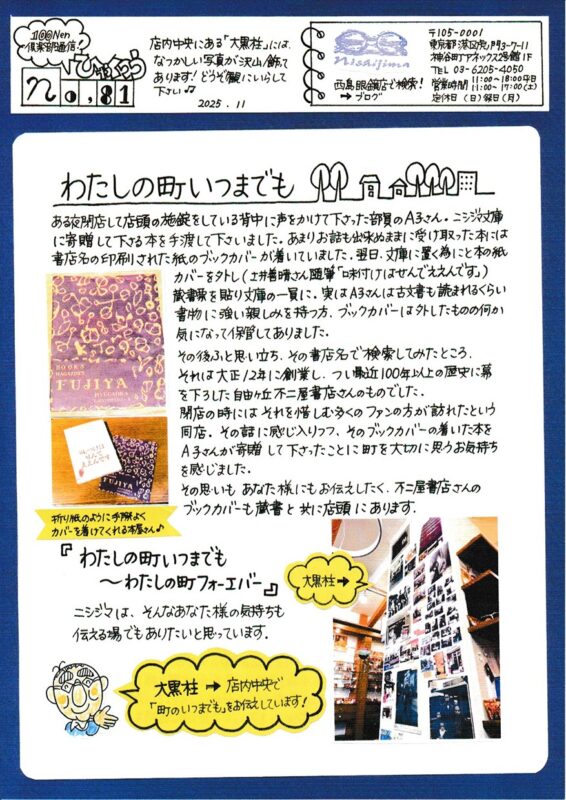 100Nen
倶楽部通信!
No,81
店内中央にある「大黒柱」には、
なつかしい写真が沢山飾って
あります! どうぞ観にいらして
下さい♫
2025.11
Nishijima
西島眼鏡店で検索!
→ブログ
〒105-0001
東京都港区虎ノ門3-7-11
神谷町アネックス2号館1F
TEL 03-6205-4050
営業時間 11:00〜18:00(平日)
11:00〜17:00(土)
定休日 (日)祭日(月)
わたしの町いつまでも
ある夜閉店して店頭の施錠をしている背中に声をかけて下さった部員のA3さん。ニシジマ文庫
に寄贈して下さる本を手渡して下さいました。あまりお話も出来ぬままに受け取った本には
書店名の印刷された紙のブックカバーが着いていました。翌日、文庫に置く為にと本の紙
カバーを外し(土井善晴さん随筆「味つけはせんでええんです。」)
蔵書票を貼り文庫の一員に。実はA3さんは古文書も読まれるくらい
書物に強い親しみを持つ方、ブックカバーは外したものの何か
気になって保管してありました。
その後ふと思い立ち、その書店名で検索してみたところ、
それは大正12年に創業し、つい最近100年以上の歴史に幕
を下ろした自由が丘不二屋書店さんのものでした。
閉店の時にはそれを惜しむ多くのファンの方が訪れたという
同店。その話に感じ入りつつ、そのブックカバーの着いた本を
A3さんが寄贈して下さったことに町を大切に思うお気持ち
を感じました。
その思いもあなた様にもお伝えしたく、不二屋書店さんの
ブックカバーも蔵書と共に店頭にあります。
BOOKS
MAGAZINES
FUJIYA
JIYUGAOKA
味つけは
せんで
ええんです
折り紙のように手際よく
カバーを着けてくれる本屋さん♪
『わたしの町いつまでも
〜わたしの町フォーエバー』
大黒柱→
ニシジマは、そんなあなた様の気持ちも
伝える場でもありたいと思っています。
大黒柱→店内中央で
「町のいつまでも」をお伝えしています!